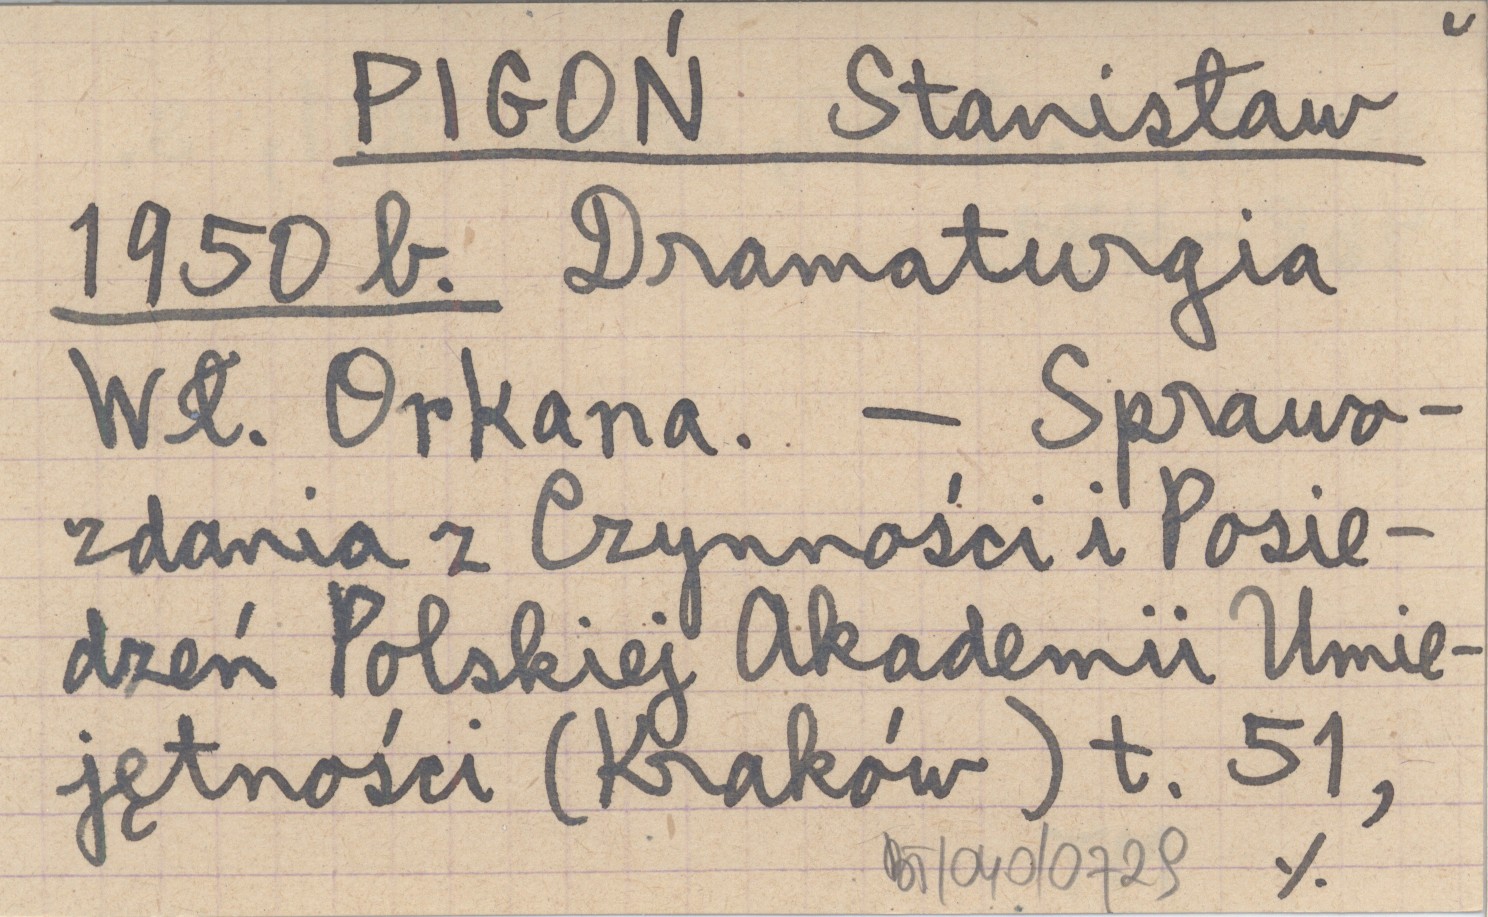 PIGOŃ Stanisław
1950 b. Dramaturgia
Wł. Orkana. — Sprawo-
zdania z Czynności i Posie-
dzeń Polskiej Akademii Umie-
jętności (Kraków) t. 51,
BT/040/0729 ./.